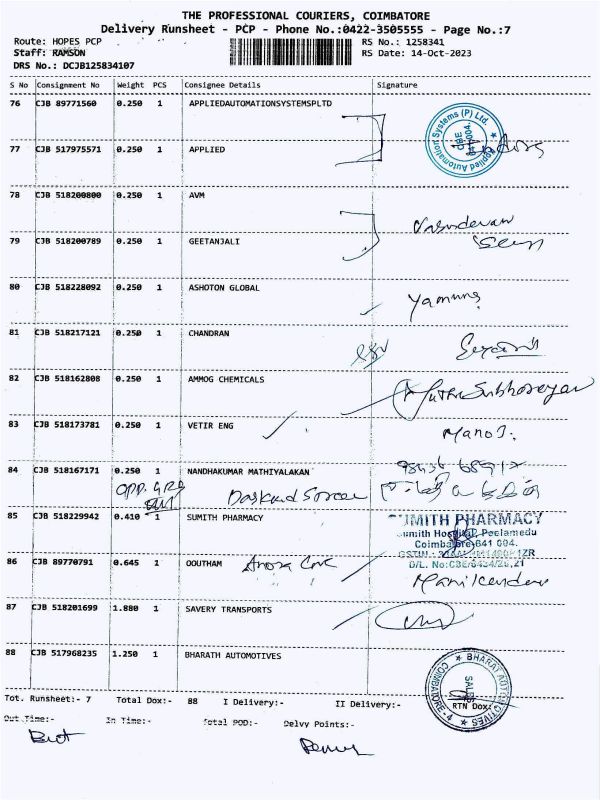 THE PROFESSIONAL COURIERS, COIMBATORE
Delivery Runsheet - PCP - Phone No.:0422-3505555 - Page No.:7
Route: HOPES PCP RS No.: 1258341
Staff: RAMSON RS Date: 14-Oct-2023
DRS No.: DCJB125834107
S No Consignment No Weight PCS Consignee Details Signature
76 CJB 89771560 0.250 1 APPLIEDAUTOMATIONSYSTEMSPLTD
Applied Automation Systems (P) Ltd. CBE
77 CJB 517975571 0.250 1 APPLIED
78 CJB 518200800 0.250 1 AVM
Vasudevan
79 CJB 518200789 0.250 1 GEETANJALI
80 CJB 518228092 0.250 1 ASHOTON GLOBAL
Yamuna
81 CJB 518217121 0.250 1 CHANDRAN
82 CJB 518162808 0.250 1 AMMOG CHEMICALS
83 CJB 518173781 0.250 1 VETIR ENG
Mano J.
84 CJB 518167171 0.250 1 NANDHAKUMAR MATHIYALAKAN
OPP.
85 CJB 518229942 0.410 1 SUMITH PHARMACY
SUMITH PHARMACY
Sumith Hospital, Peelamedu
Coimbatore-641 004.
86 CJB 89770791 0.645 1 OOUTHAM
Manikandan
87 CJB 518201699 1.880 1 SAVERY TRANSPORTS
88 CJB 517968235 1.250 1 BHARATH AUTOMOTIVES
BHARAT AUTOMOTIVES COIMBATORE-4 SALES
Tot. Runsheet:- 7 Total Dox:- 88 I Delivery:- II Delivery:- RTN Dox:
Out Time:- In Time:- Total POD:- Delvy Points:-